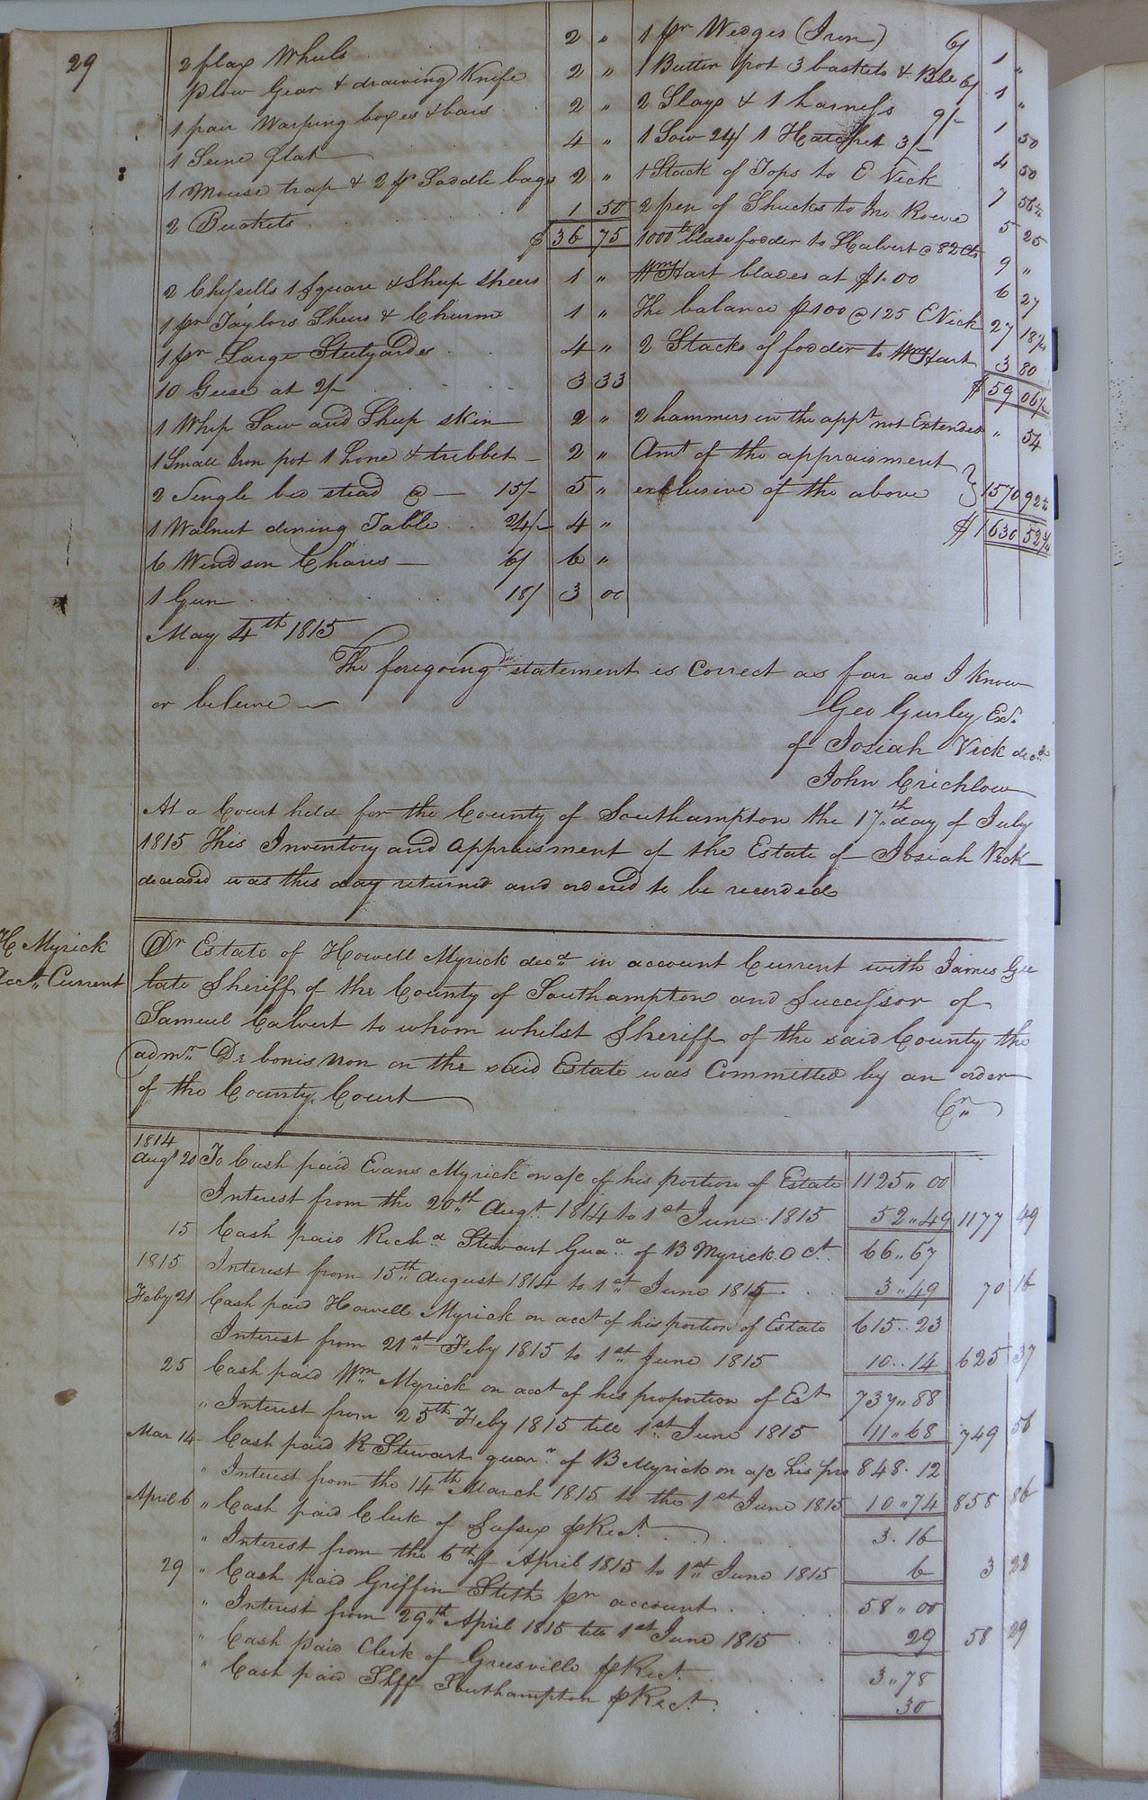 29
2 flax Wheels 2 "
Plow Gear & drawing Knife 2 "
1 pair Warping boxes & bars 2 "
1 Seine flat 4 "
1 Mouse trap & 2 pr Saddle bags 2 "
2 Buckets 1 50
$ 36 75
2 Chissells 1 Square & Sheep Sheers 1 "
1 pr Taylors Shears & Churn 1 "
1 pr Large Steelyardes 4 "
10 Geese at 2/- 3 33
1 Whip Saw and Sheep skin 2 "
1 Small Iron pot 1 hone & tribbet 2 "
2 Single bed stead @ 15/- 5 "
1 Walnut dining Table 24/- 4 "
6 Windsor Chairs 6/ 6 "
1 Gun 18/ 3 00
1 pr Wedges (Iron) 6/ 1 "
1 Butter pot 3 baskets & Bbl 6/ 1 "
2 Slays & 1 harness 9/- 1 50
1 Saw 24/ 1 Hatchet 3/- 4 50
1 Stack of Tops to E Vick 7
2 pen of Shucks to Jno Rowe 5 25
1000 lb blade fodder to Calvert @ 82 Cts 9 "
Wm Hart blades at $1.00 6 27
The balance @ 125 E Vick 27 18 3/4
2 Stacks of fodder to Wm Hart 3 80
$ 59 06 1/4
2 hammers in the appt not Extended " 54
Amt of the appraisment
exclusive of the above 1570 92
$ 1630 52 3/4
May 4th 1815
The foregoing statement is Correct as far as I Know
or beleive
Geo Gurley Exr.
of Josiah Vick decd
John Crichlow
At a Court held for the County of Southampton the 17th day of July
1815 This Inventory and appraisment of the Estate of Josiah Vick
deceased was this day returned and ordered to be recorded
H Myrick
acct Current
Dr Estate of Howell Myrick decd in account Current with James Gee
late Sheriff of the County of Southampton and Successor of
Samuel Calvert to whom whilst Sheriff of the said County the
admn. De bonis non on the said Estate was Committed by an order
of the County Court Cr
1814
Augt 20 To Cash paid Evans Myrick on a/c of his portion of Estate 1125 " 00
Interest from the 20th Augt. 1814 to 1st June 1815 52 " 49 1177 49
15 Cash paid Richd Stewart Guan. of B Myrick O Ct. 66 " 67
1815 Interest from 15th august 1814 to 1st June 1815 3 " 49 70 16
Feby 21 Cash paid Howell Myrick on acct of his portion of Estate 615 .. 23
Interest from 21st Feby 1815 to 1st June 1815 10 .. 14 625 37
25 Cash paid Wm Myrick on acct of his proportion of Est 737 " 88
" Interest from 25th Feby 1815 till 1st June 1815 11 " 68 749 56
Mar 14 Cash paid R Stewart guan. of B Myrick on a/c his pro 848 . 12
" Interest from the 14th March 1815 to the 1st June 1815 10 " 74 858 86
April 6 " Cash paid Clerk of Sussex pr Rect. 3 . 16
" Interest from the 6th of April 1815 to 1st June 1815 6 3 22
29 " Cash paid Griffin Stith pr account 58 " 00
" Interest from 29th April 1815 till 1st June 1815 29 58 29
" Cash paid Clerk of Greesville pr Rect. 3 " 78
" Cash paid Shff Southampton pr Rect. 30